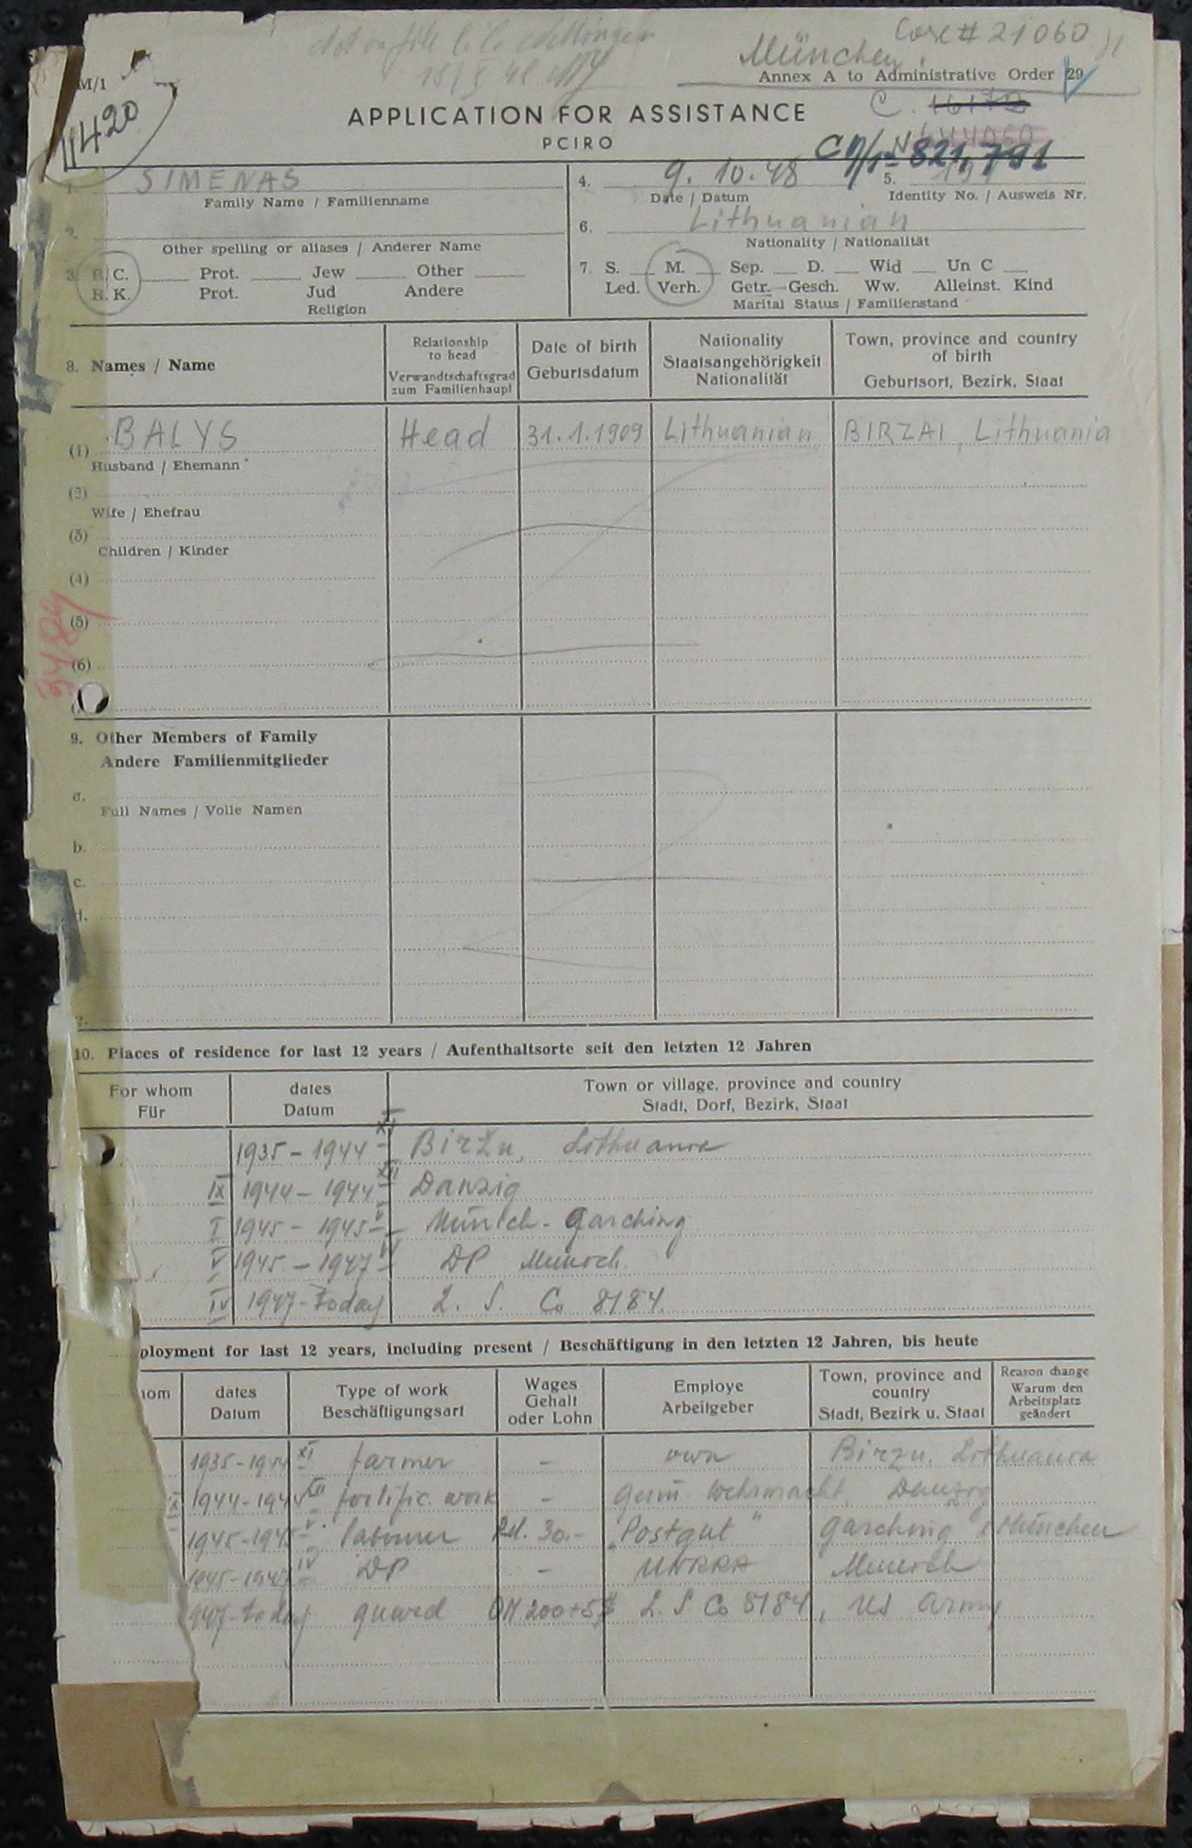 Case # 21060
München
Annex A to Administrative Order 29
M/1
11420
APPLICATION FOR ASSISTANCE
PCIRO
C. 16172
CM/1 821,791
1. SIMENAS
Family Name / Familienname
4. 9. 10. 48
Date / Datum
5.
Identity No. / Ausweis Nr.
2.
Other spelling or aliases / Anderer Name
6. Lithuanian
Nationality / Nationalität
3. R. C. Prot. Jew Other
R. K. Prot. Jud Andere
Religion
7. S. M. Sep. D. Wid Un C
Led. Verh. Getr. Gesch. Ww. Alleinst. Kind
Marital Status / Familienstand
8. Names / Name
Relationship to head
Verwandtschaftsgrad zum Familienhaupt
Date of birth
Geburtsdatum
Nationality
Staatsangehörigkeit
Nationalität
Town, province and country of birth
Geburtsort, Bezirk, Staat
(1) BALYS Head 31.1.1909 Lithuanian BIRZAI, Lithuania
Husband / Ehemann
(2)
Wife / Ehefrau
(3)
Children / Kinder
(4)
(5)
(6)
3489
9. Other Members of Family
Andere Familienmitglieder
a.
Full Names / Volle Namen
b.
c.
d.
10. Places of residence for last 12 years / Aufenthaltsorte seit den letzten 12 Jahren
For whom
Für
dates
Datum
Town or village, province and country
Stadt, Dorf, Bezirk, Staat
1935 - 1944 XI Biržu, Lithuania
IX 1944 - 1944 XII Danzig
I 1945 - 1945 V Münich - Garching
V 1945 - 1947 IV DP Munich
IV 1947 - today L. S. Co 8184
ployment for last 12 years, including present / Beschäftigung in den letzten 12 Jahren, bis heute
hom
dates
Datum
Type of work
Beschäftigungsart
Wages
Gehalt
oder Lohn
Employe
Arbeitgeber
Town, province and country
Stadt, Bezirk u. Staat
Reason change
Warum den
Arbeitsplatz
geändert
1935 - 1944 XI farmer - own Birzu, Lithuania
IX 1944 - 1944 XII fortific. work - germ. Wehrmacht Danzig
1945 - 1945 V labourer RM. 30.- "Postgut" Garching, München
1945 - 1947 IV DP - UNRRA Munich
1947 - today guard DM 200+5$ L. S Co 8184, US Army